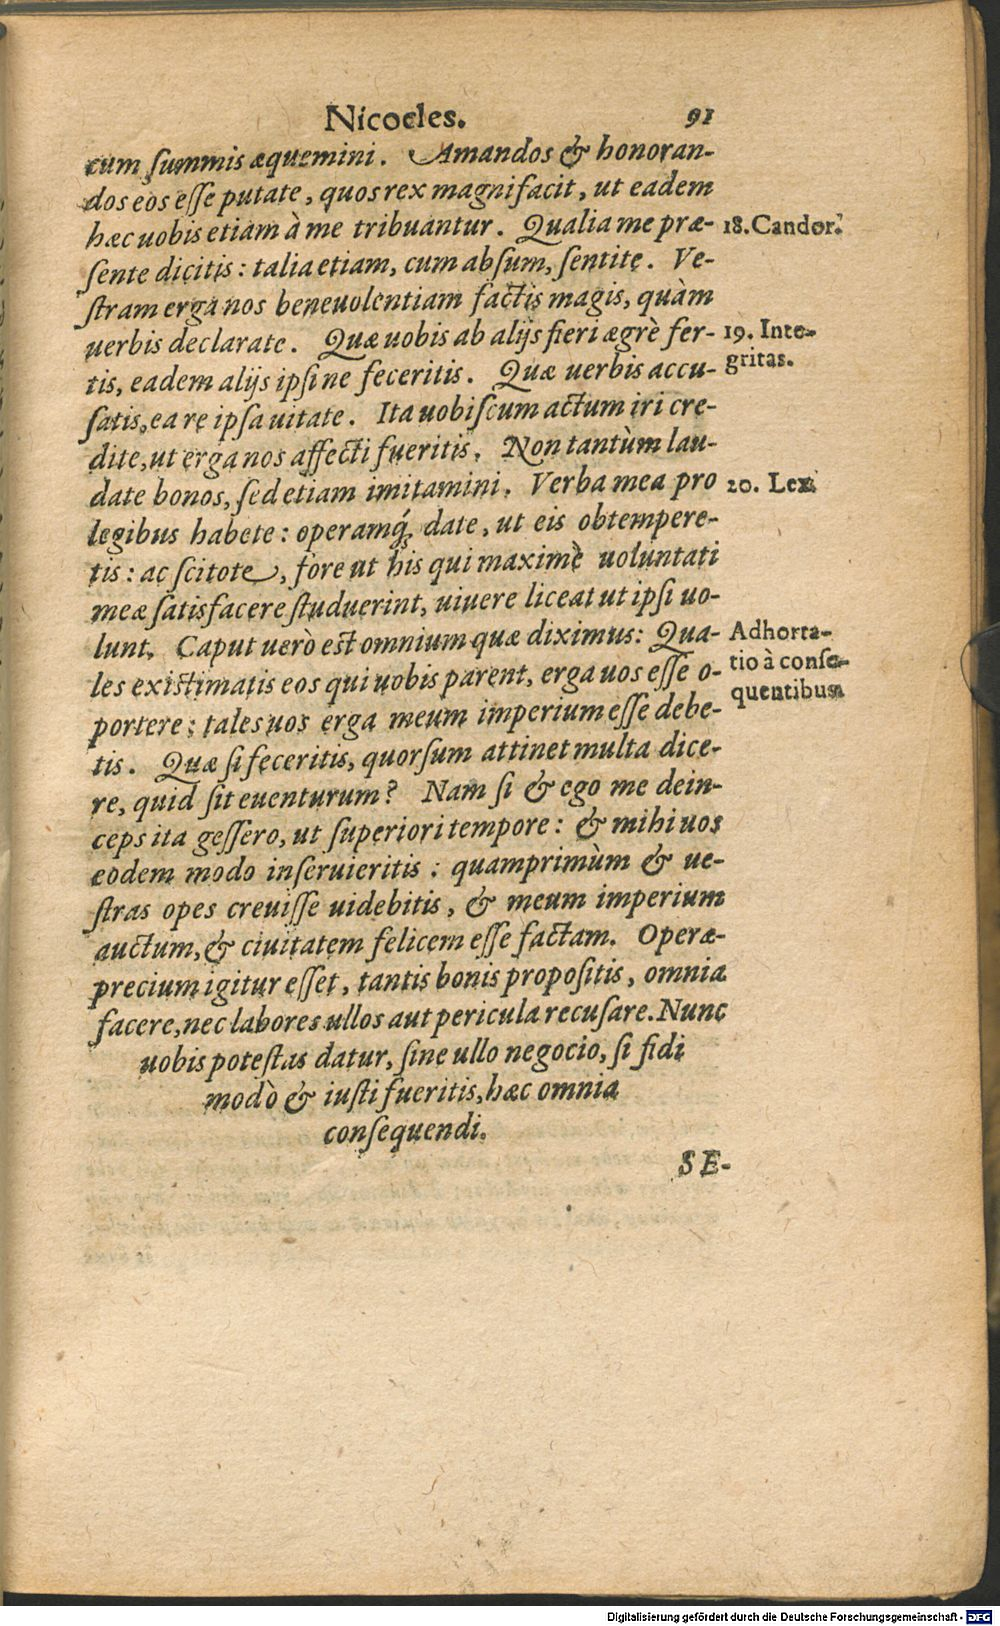 Nicocles. 91
cum ſummis æquemini. Amandos & honoran-
dos eos eſſe putate, quos rex magnifacit, ut eadem
hæc uobis etiam à me tribuantur. Qualia me præ- 18. Candor.
ſente dicitis: talia etiam, cum abſum, ſentite. Ve-
ſtram erga nos beneuolentiam factis magis, quàm
uerbis declarate. Quæ uobis ab alijs fieri ægrè fer- 19. Inte-
tis, eadem alijs ipſi ne feceritis. Quæ uerbis accu- gritas.
ſatis, ea re ipſa uitate. Ita uobiſcum actum iri cre-
dite, ut erga nos affecti fueritis. Non tantùm lau-
date bonos, ſed etiam imitamini. Verba mea pro 20. Lex
legibus habete: operamq́; date, ut eis obtempere-
tis: ac ſcitote, fore ut his qui maximè uoluntati
meæ ſatisfacere ſtuduerint, uiuere liceat ut ipſi uo-
lunt. Caput uerò est omnium quæ diximus: Qua- Adhorta-
les existimatis eos qui uobis parent, erga uos eſſe o- tio à conſe-
portere: tales uos erga meum imperium eſſe debe- quentibus
tis. Quæ ſi feceritis, quorſum attinet multa dice-
re, quid ſit euenturum? Nam ſi & ego me dein-
ceps ita geſſero, ut ſuperiori tempore: & mihi uos
eodem modo inſeruieritis: quamprimùm & ue-
ſtras opes creuiſſe uidebitis, & meum imperium
auctum, & ciuitatem felicem eſſe factam. Operæ-
precium igitur eſſet, tantis bonis propoſitis, omnia
facere, nec labores ullos aut pericula recuſare. Nunc
uobis poteſtas datur, ſine ullo negocio, ſi fidi
modò & iuſti fueritis, hæc omnia
conſequendi.
SE-
Digitalisierung gefördert durch die Deutsche Forschungsgemeinschaft - DFG